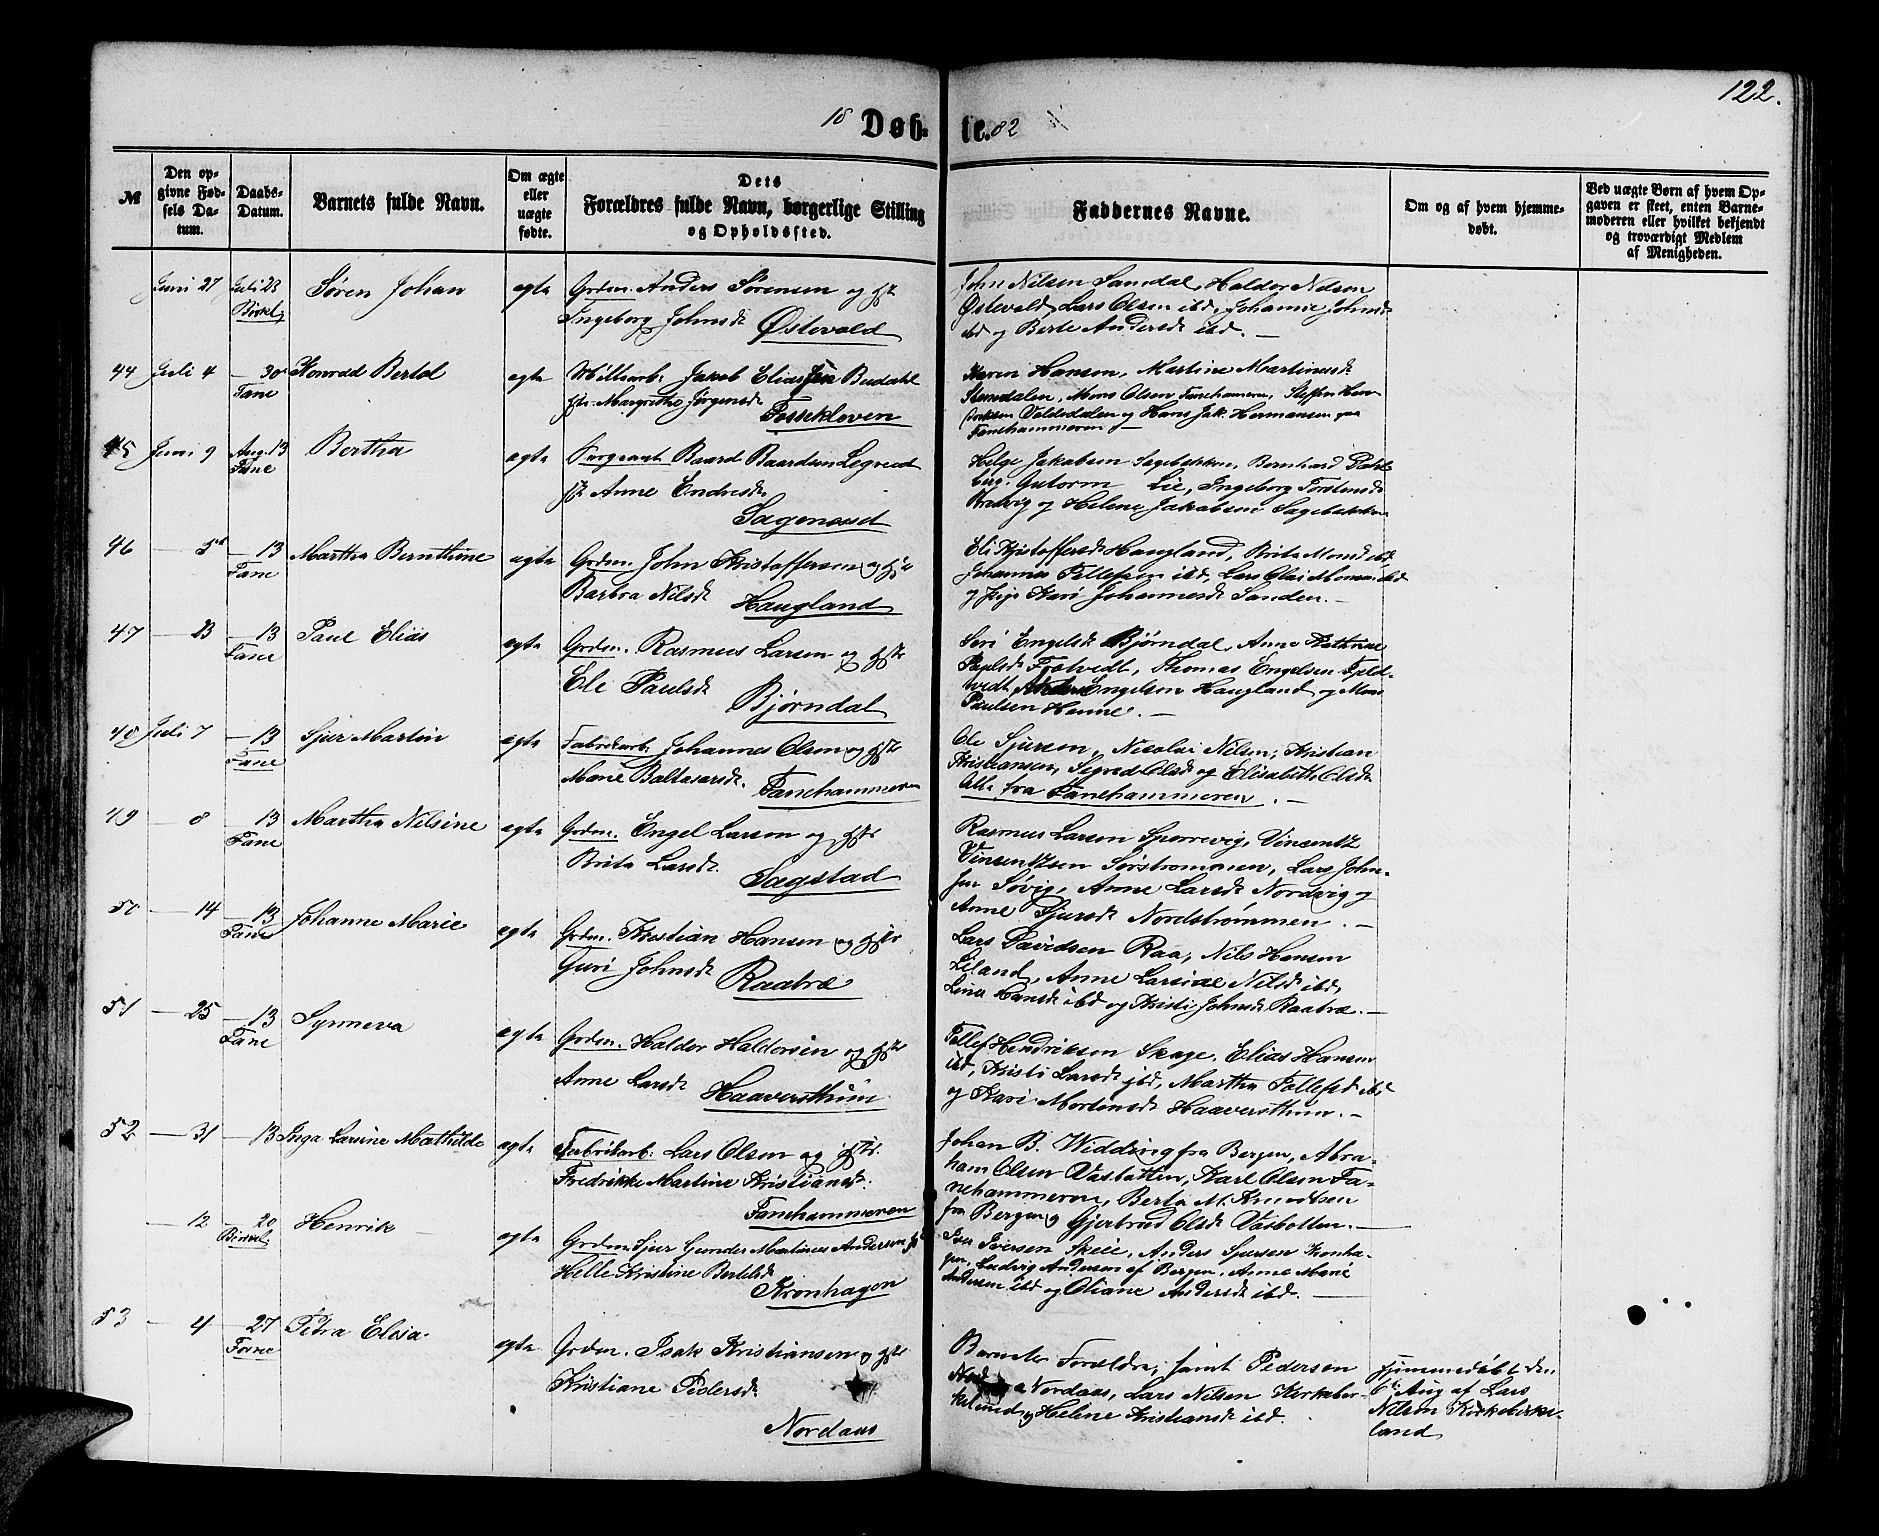 122.
18 Døb- te. 82
№
Den op-
givne Fød-
sels Da-
tum.
Daabs-
Datum.
Barnets fulde Navn.
Om ægte
eller
uægte
fødte.
Dets
Forældres fulde Navn, borgerlige Stilling
og Opholdssted.
Faddernes Navne.
Om og af hvem hjemme-
døbt.
Ved uægte Børn af hvem Op-
gaven er skeet, enten Barne-
moderen eller hvilket bekjendt
og troværdigt Medlem
af Menigheden.
Juni 27 Juli 23 Søren Johan egte Grdm. Anders Sørensen og Hstr
Birkel. Ingeborg Johnsdt Østevold
John Nilsen Samdal, Haldor Nilsen
Østevold, Lars Olsen ibd, Johanne Johnsd
ibd og Berte Andersdt ibd. —
44 Juli 4 — 30 Konrad Bertel egte Jakob Elias Budahl
Fane Hstr. Margrethe Jørgensdt
Fossekleven
Karen Hansen, Martine Martinusdt
Stendalen, Mons Olsen Fanehammeren, Steffen Hen-
driksen Valdedalen og Hans Jak. Hermansen paa
Fanehammeren
45 Juni 9 Aug. 13 Bertha egte Sergeant Baard Baardsen Legreid
Fane Anne Endresdt.
Sagenæsset
Helge Jakobsen Sagebakken, Bernhard Dahl
berg, Gutorm Lie, Ingeborg Torstensdt
og Helene Jakobsen Sagebakken
46 — 5 — 13 Martha Bernthine egte Grdm. John Kristoffersen og Hstr
Fane Barbra Nilsdt Haugland
Eli Kristoffersdt Haugland, Brita Monsd ibd,
Johannes Tollefsen ibd, Lars Olai Monsen ibd
og Pige Kari Johannesdt Sanden. —
47 — 23 — 13 Paul Elias egte Grdm. Rasmus Larsen og Hstr
Fane Eli Paulsdt
Bjørndal
Siri Engelsdt Bjørndal, Anne Kathrine
Paulsdt Fotvedt, Thomas Engelsen Fjeld-
vedt, Anders Engelsen Haugland og Mons
Paulsen Henne. —
48 Juli 7 — 13 Sjur Martin egte Fabrikarb. Johannes Olsen og Hstr
Fane Marie Baltasarsdt. Fanehammeren
Ole Sjursen, Nicolai Nilsen, Kristian
Kristiansen, Sigred Olsdt og Elisabeth Olsdt
Alle fra Fanehammeren. —
49 — 8 — 13 Martha Nilsine egte Grdm. Engel Larsen og Hstr
Fane Brita Larsdt.
Sagstad
Rasmus Larsen Sporrevig, Vincentz
Vincentzsen Sørstrømmen, Lars John-
sen Søvig, Anne Larsdt Nordvig og
Anne Sjursdt Nordstrømmen. —
50 — 14 — 13 Johanne Marie egte Grdm. Kristian Hansen og Hstr
Fane Guri Johnsdt
Raabræ
Lars Davidsen Raa, Nils Hansen
Liland, Anne Larsine Nilsdt ibd,
Line Hansdt ibd og Kristi Johnsdt Raabræ. —
51 — 25 — 13 Synneva egte Grdm. Haldor Haldorsen og Hstr
Fane Anne Larsdt
Haaversthun
Tollef Hendriksen Skage, Elias Hansen
ibd, Kristi Larsdt ibd, Martha Tollefsd ibd
og Kari Mortensdt Haaversthun. —
52 — 31 — 13 Inga Larine Mathilde egte Fabrikarb. Lars Olsen og Hstr.
Fredrikke Martine Kristiansdt.
Fanehammeren
Johan B. Widding fra Bergen, Abra-
ham Olsen Vasbotten, Karl Olsen Fa-
nehammeren, Berta M. Knudtsen
fra Bergen og Gjertrud Olsdt Vasbotten. —
— 12 — 20 Henrik — egte Grdm. Sjur Gunder Martinus Andersen
Birkel. Helle Kristine Bertelsdt
Kronhagen
Iver Iversen Skeie, Anders Sjursen Kronha-
gen, Ludvig Andersen af Bergen, Anne Marie
Andersen ibd og Oliane Andersdt ibd. —
53 — 4 — 27 Petra Elisa. egte Grdm. Isak Kristiansen og Hstr
Kristiane Pedersdt
Nordaas
Barnets Forældre, samt Pedersen
Nordaas, Lars Nilsen Kirkebir-
keland og Helene Kristiansdt ibd.
Hjemmedøbt den
6te Aug af Lars
Nilsen Kirkebirke-
land